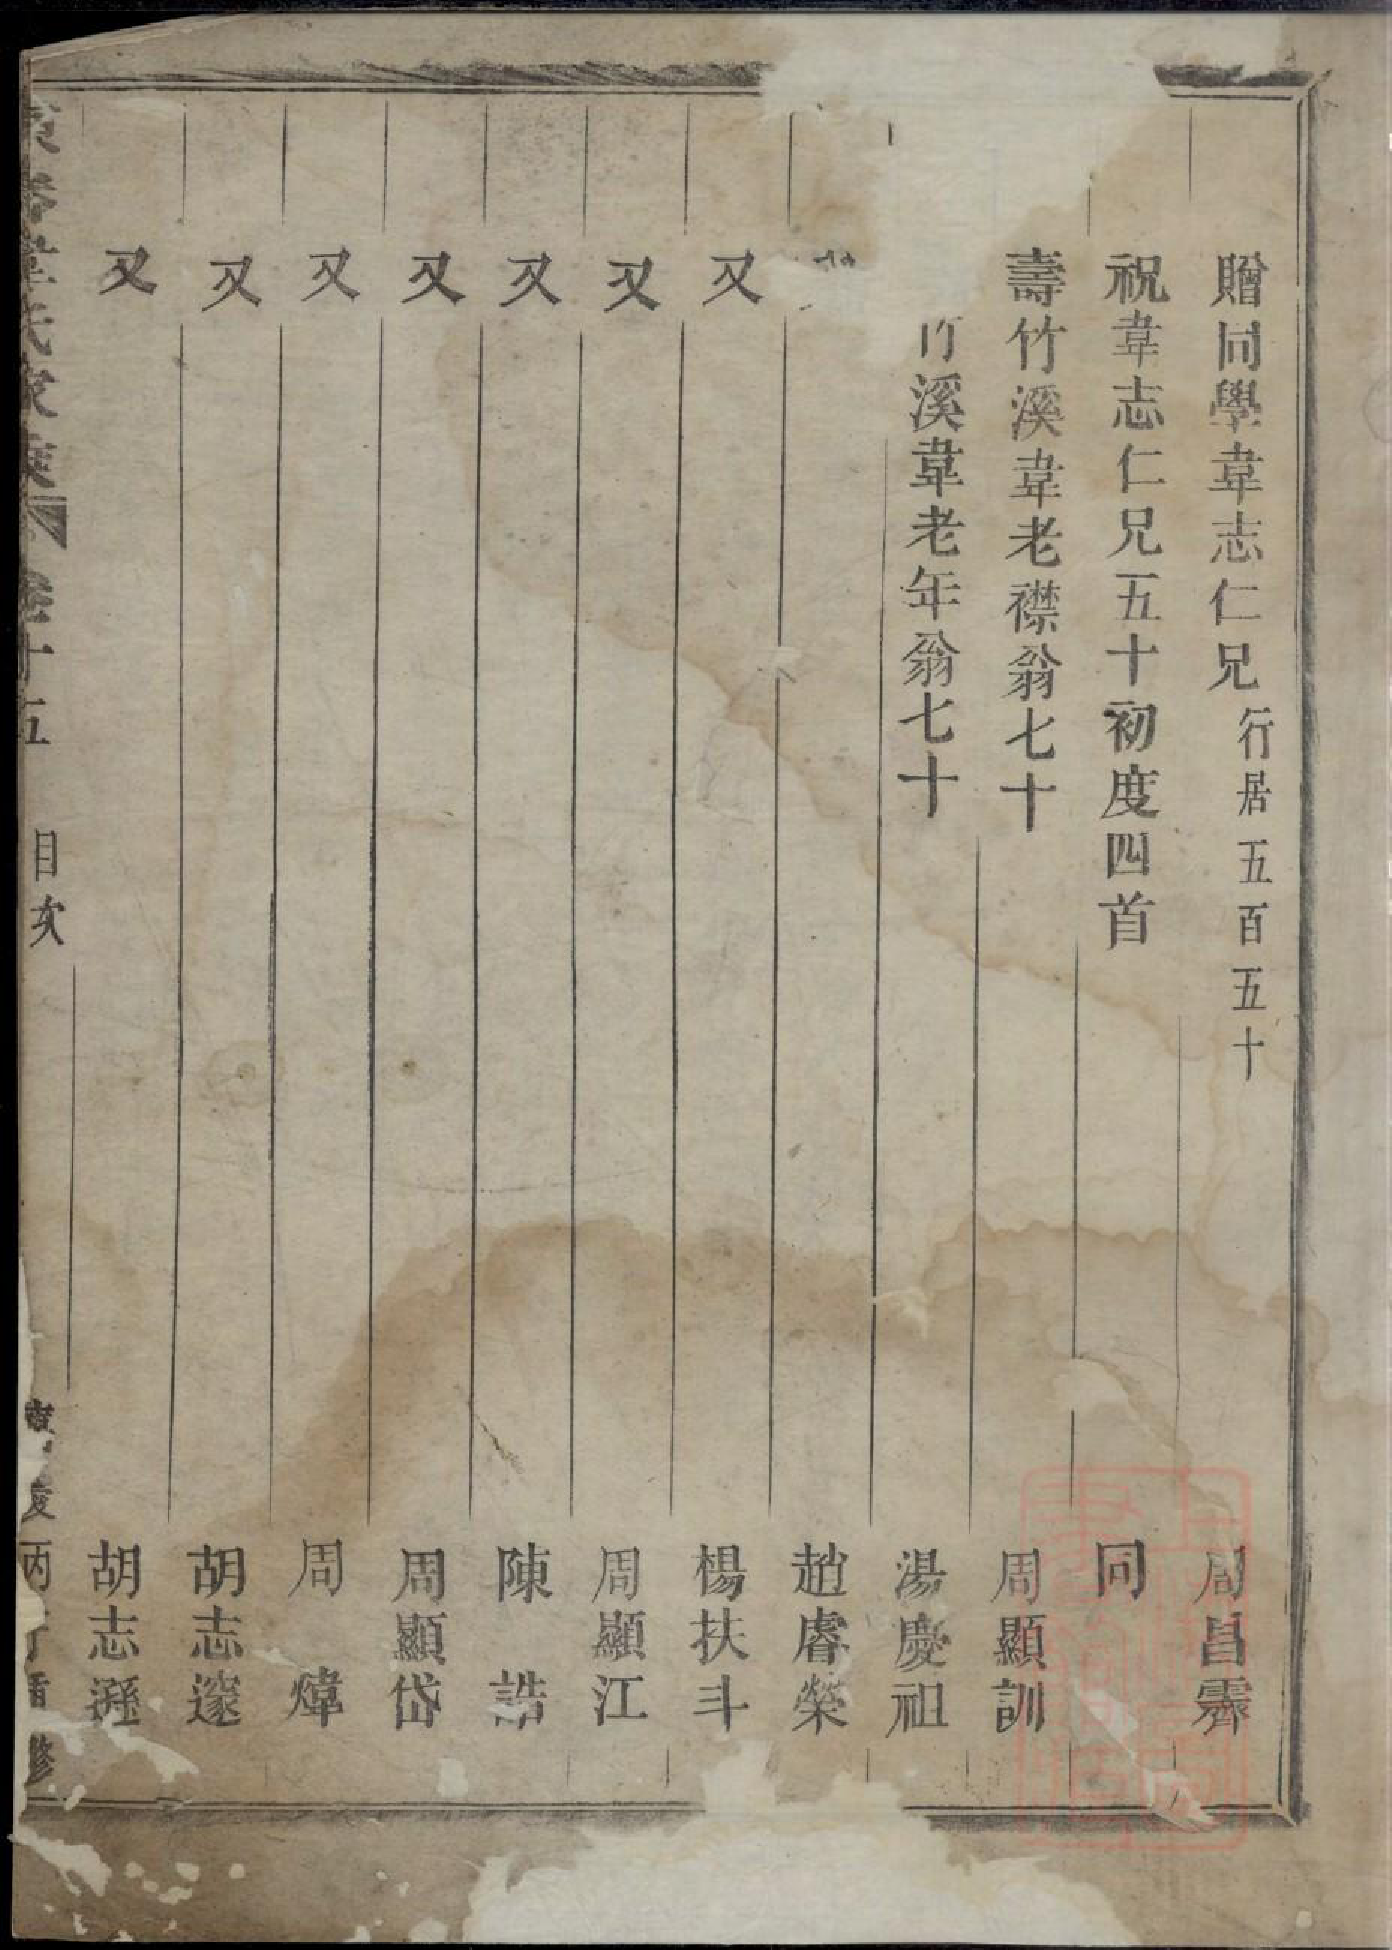 贈同學韋志仁兄行居五百五十 周昌霽
祝韋志仁兄五十初度四首 同
壽竹溪韋老襟翁七十 周顯訓
竹溪韋老年翁七十 湯慶祖
趙睿榮
又 楊扶斗
又 周顯江
又 陳誥
又 周顯岱
又 周煒
又 胡志邃
又 胡志遜
韋氏家乘 卷十五 目次